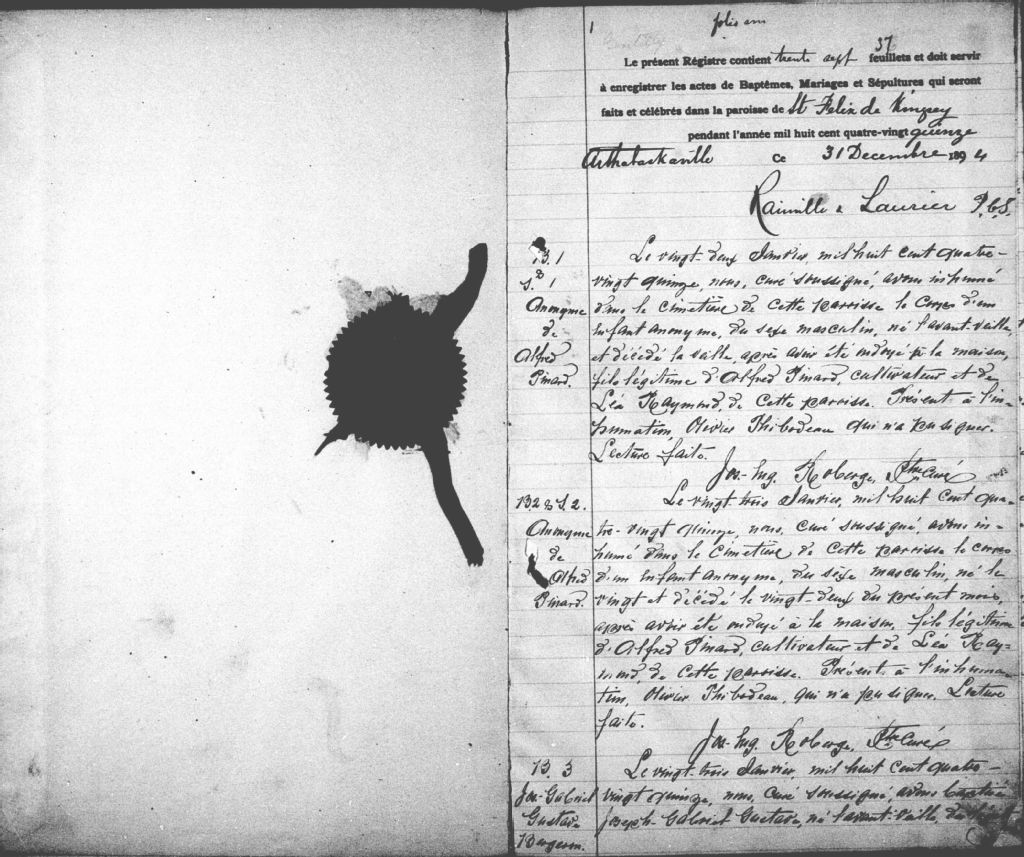 1
folio un
37
Le présent Régistre contient trente sept feuillets et doit servir
à enregistrer les actes de Baptêmes, Mariages et Sépultures qui seront
faits et célébrés dans la paroisse de St Felix de Kingsey
pendant l'année mil huit cent quatre-vingt quinze
Arthabaskaville Ce 31 Decembre 1894
Rainville & Laurier P.C.S.
B. 1
S. 1
Anonyme
de
Alfred
Pinard.
Le vingt-deux Janvier, mil huit cent quatre-
vingt quinze, nous, curé soussigné, avons inhumé
dans le cimetière de cette paroisse le corps d'un
enfant anonyme, du sexe masculin, né l'avant-veille,
et décédé la veille, après avoir été ondoyé à la maison,
fils légitime d'Alfred Pinard, cultivateur et de
Léa Raymond, de cette paroisse. Présent à l'in-
humation, Olivier Thibodeau qui n'a pu signer.
Lecture faite.
Jos-Hug. Roberge, Ptre Curé
B 2 & S. 2.
Anonyme
de
Alfred
Pinard.
Le vingt-trois Janvier, mil huit cent qua-
tre-vingt quinze, nous, curé soussigné, avons in-
humé dans le cimetière de cette paroisse le corps
d'un enfant anonyme, du sexe masculin, né le
vingt et décédé le vingt-deux du présent mois,
après avoir été ondoyé à la maison, fils légitime
d'Alfred Pinard, cultivateur et de Léa Ray-
mond, de cette paroisse. Présent à l'inhuma-
tion, Olivier Thibodeau, qui n'a pu signer. Lecture
faite.
Jos-Hug. Roberge, Ptre Curé
B. 3
Jos-Gabriel
Gustave
Bergeron.
Le vingt-trois Janvier, mil huit cent quatre-
vingt quinze, nous, curé soussigné, avons baptisé
Joseph-Gabriel Gustave, né l'avant-veille,